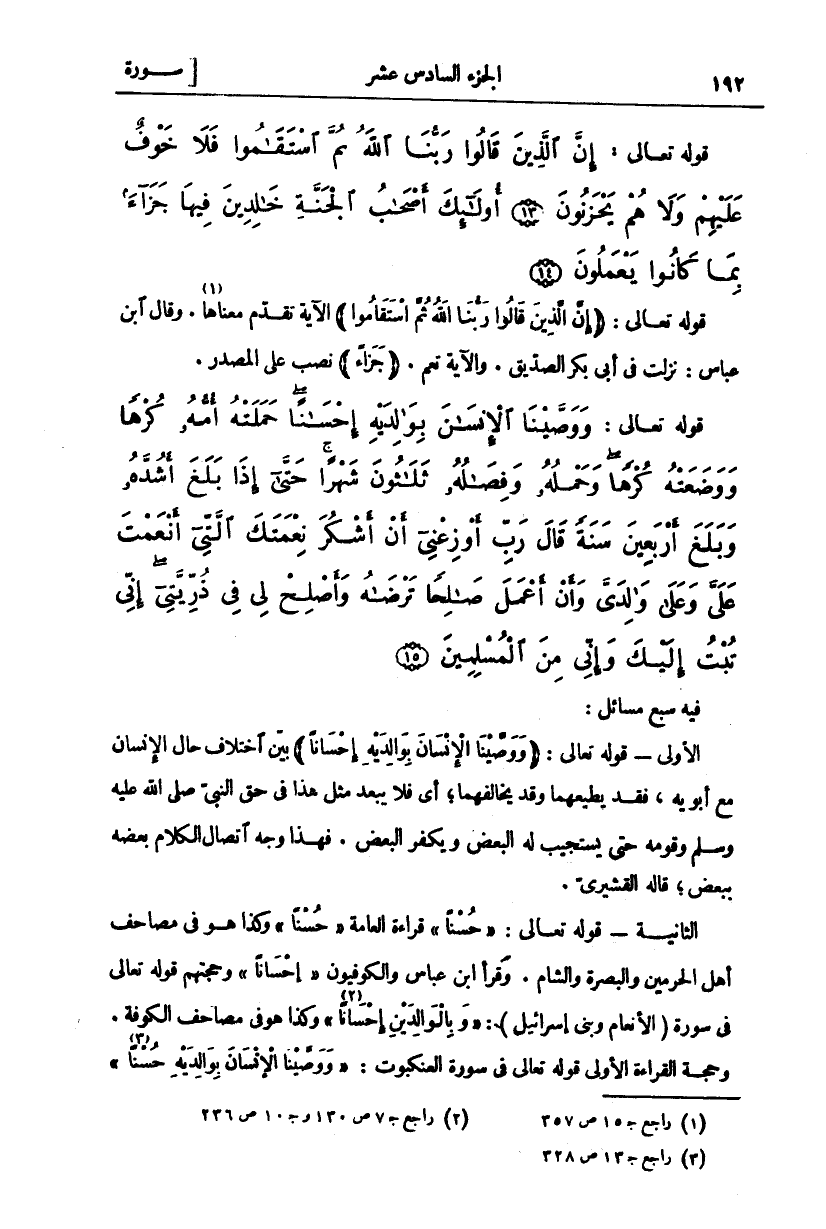 ١٩٢ الجزء السادس عشر [ ســورة
قوله تعـالى : إِنَّ ٱلَّذِينَ قَالُوا رَبُّنَـا ٱللَّهُ ثُمَّ ٱسْتَقَـٰمُوا فَلَا خَوْفٌ
عَلَيْهِمْ وَلَا هُمْ يَحْزَنُونَ ﴿١٣﴾ أُولَـٰٓئِكَ أَصْحَـٰبُ ٱلْجَنَّـةِ خَـٰلِدِينَ فِيهَا جَزَآءَۢ
بِمَـا كَانُوا يَعْمَلُونَ ﴿١٤﴾
قوله تعـالى : ﴿ إِنَّ الَّذِينَ قَالُوا رَبُّنَـا اللهُ ثُمَّ اسْتَقَامُوا ﴾ الآية تقـدّم معناها (١) . وقال ٱبن
عباس : نزلت فى أبى بكر الصدّيق . والآية تعم . ﴿ جَزَاءً ﴾ نصب على المصدر .
قوله تعـالى : وَوَصَّيْنَا ٱلْإِنسَـٰنَ بِوَٰلِدَيْهِ إِحْسَـٰنًا ۖ حَمَلَتْهُ أُمُّهُۥ كُرْهًا
وَوَضَعَتْهُ كُرْهًا ۖ وَحَمْـلُهُۥ وَفِصَـٰلُهُۥ ثَلَـٰثُونَ شَهْرًا ۚ حَتَّىٰٓ إِذَا بَلَغَ أَشُدَّهُۥ
وَبَلَغَ أَرْبَعِينَ سَنَةً قَالَ رَبِّ أَوْزِعْنِىٓ أَنْ أَشْـكُرَ نِعْمَتَكَ ٱلَّتِىٓ أَنْعَمْتَ
عَلَىَّ وَعَلَىٰ وَٰلِدَىَّ وَأَنْ أَعْمَـلَ صَـٰلِحًا تَرْضَـٰهُ وَأَصْلِـحْ لِى فِى ذُرِّيَّتِىٓ ۖ إِنِّى
تُبْتُ إِلَيْـكَ وَإِنِّى مِنَ ٱلْمُسْلِمِينَ ﴿١٥﴾
فيه سبع مسائل :
الأولى – قوله تعالى : ﴿ وَوَصَّيْنَا الْإِنْسَانَ بِوَالِدَيْهِ إِحْسَانًا ﴾ بيّن ٱختلاف حال الإنسان
مع أبويه ، فقـد يطيعهما وقد يخالفهما ؛ أى فلا يبعد مثل هذا فى حق النبىّ صلى الله عليه
وسـلم وقومه حتى يستجيب له البعض ويكفر البعض . فهـذا وجه ٱتصال الكلام بعضه
ببعض ؛ قاله القشيرىّ .
الثانيـة – قوله تعـالى : « حُسْنًا » قراءة العامة « حُسْنًا » وكذا هـو فى مصاحف
أهل الحرمين والبصرة والشام . وقرأ ابن عباس والكوفيون « إِحْسَانًا » وحجتهم قوله تعالى
فى سورة ( الأنعام وبنى إسرائيل ) : « وَبِالْوَالِدَيْنِ إِحْسَانًا (٢) » وكذا هو فى مصاحف الكوفة .
وحجـة القراءة الأولى قوله تعالى فى سورة العنكبوت : « وَوَصَّيْنَا الْإِنْسَانَ بِوَالِدَيْهِ حُسْنًا (٣) »
(١) راجع جـ ١٥ ص ٣٥٧ (٢) راجع جـ ٧ ص ١٣٠ و جـ ١٠ ص ٢٣٦
(٣) راجع جـ ١٣ ص ٣٢٨